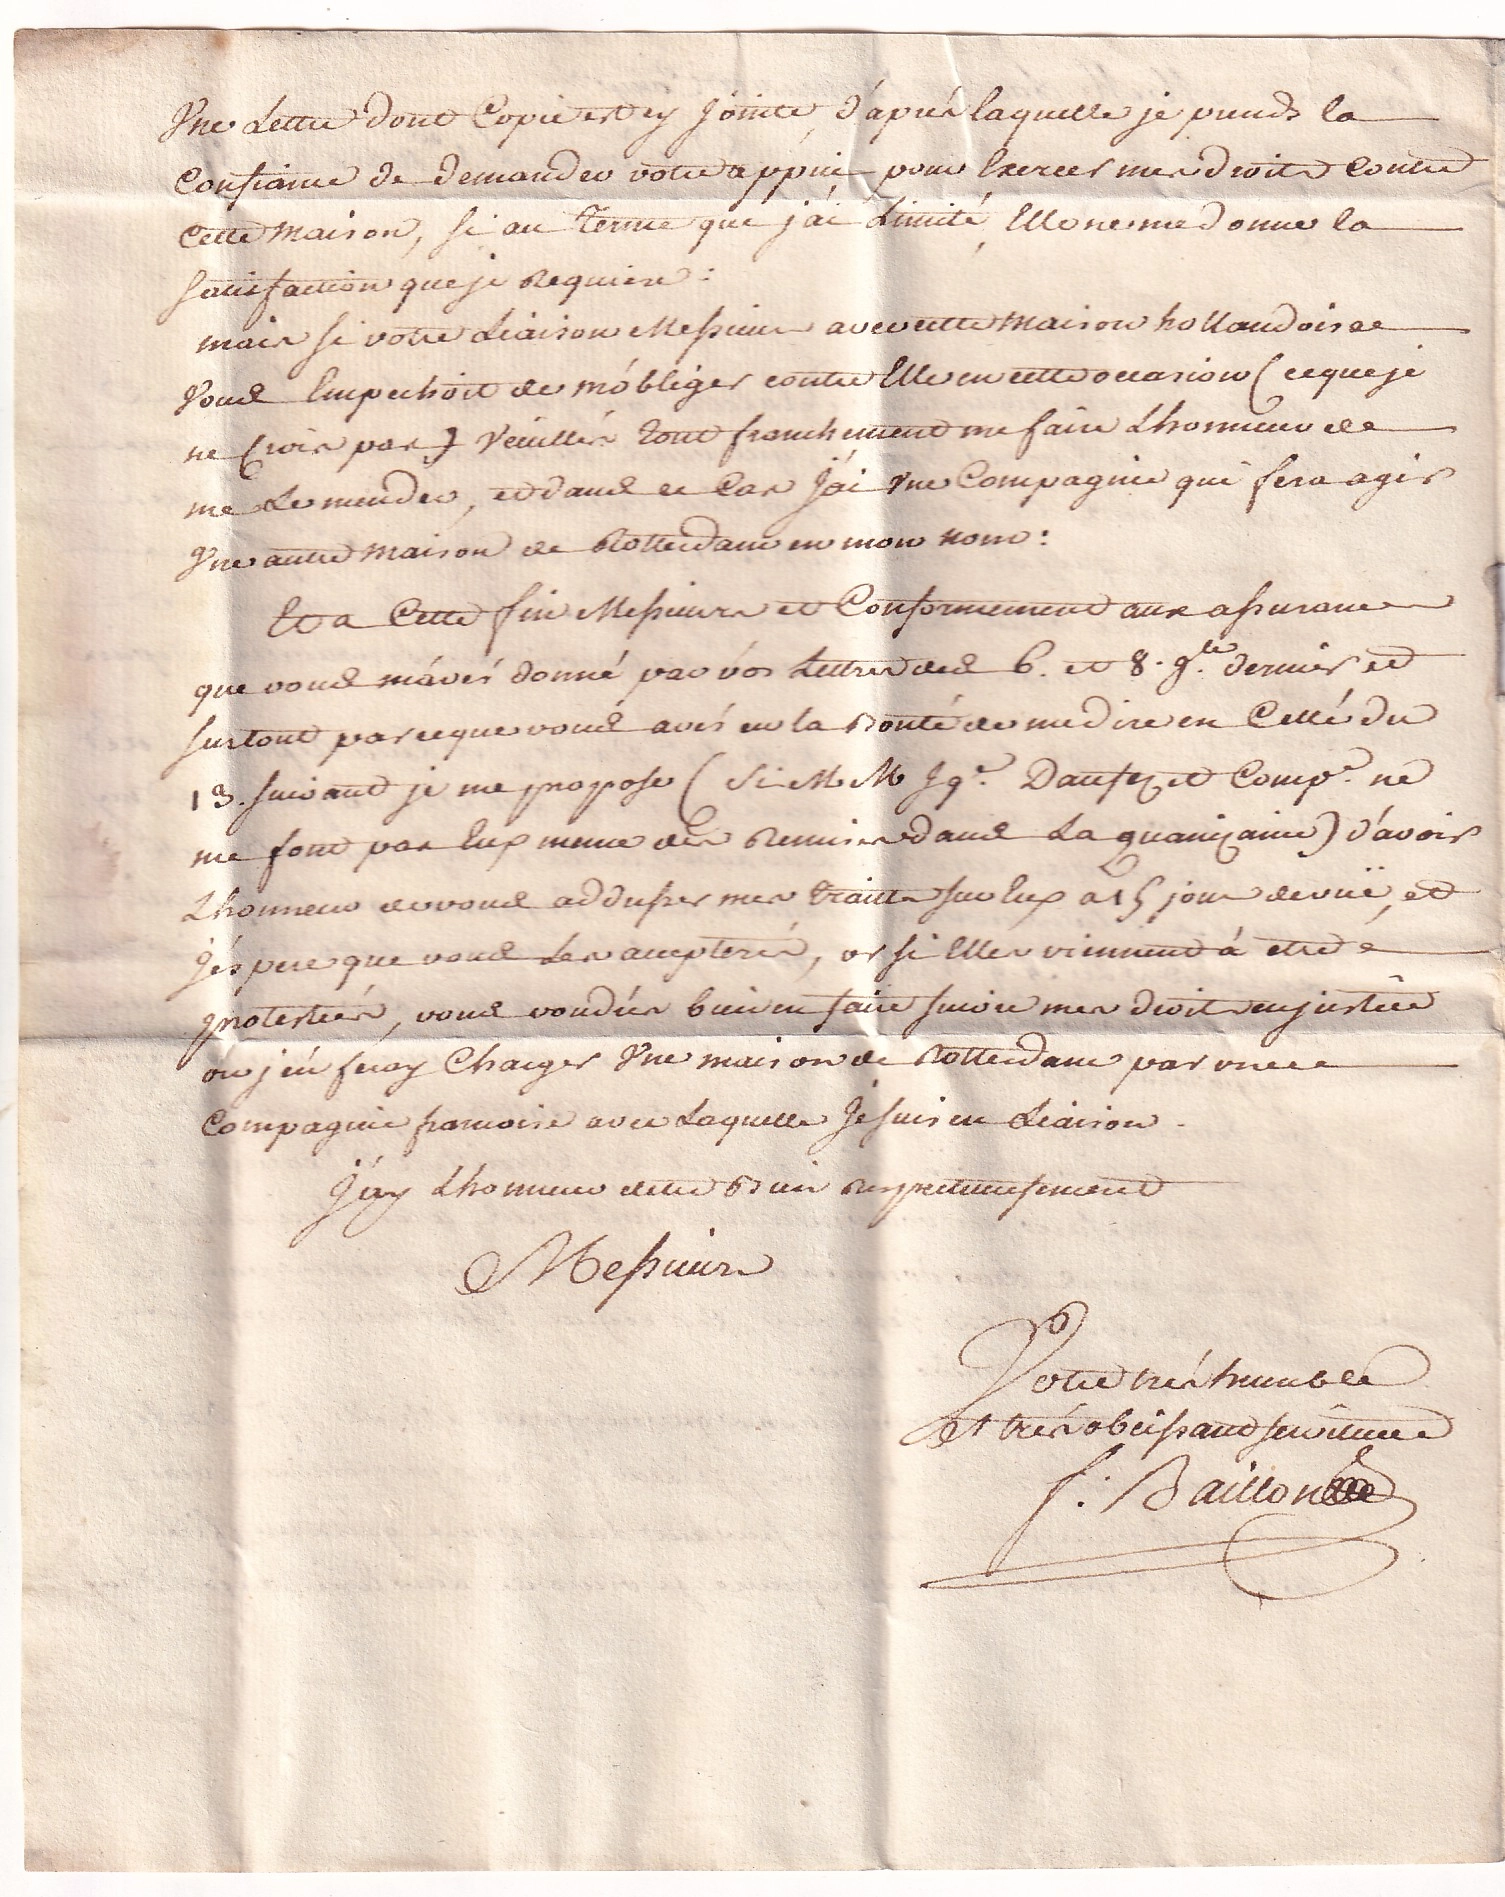 Une Lettre dont Copie est cy Jointe, d'aprés laquelle je prends la
Confiance de demander votre appui pour Exercer mes droits Contre
Cette Maison, si au Terme que j'ai Limité, Elle ne me donne la
satisfaction que je Requiere:
mais si votre Liaison Messieurs avec cette maison hollandoise
Vous Empechoit de m'obliger contre Elle en cette occasion (ce que je
ne Crois pas) Veuillés tout franchement me faire L'honneur de
me Le mander, et dans ce Cas J'ai une Compagnie qui fera agir
Une autre maison de Rotterdam en mon nom:
Et a Cette fin Messieurs et Conformement aux assurances
que vous m'avés donné par vos Lettres des 6. et 8. 9.bre dernier et
surtout par ce que vous avés eu la Bonté de me dire en Celle du
13. suivant je me propose (Si M M Jqs. Dansez et Compe. ne
me font pas Eux meme des Remises dans La quainzaine) d'avois
L'honneur de vous addresser mes traittes sur Eux a 15 jours de vuë, et
J'éspere que vous Les accepterés, or si Elles viennent à etre
protestées, vous voudrés bien en faire suivre mes droits en justice
ou j'en feray Charger Une maison de Rotterdam par une
Compagnie francoise avec Laquelle Je suis en Liaison.
J'ay L'honneur d'etre Bien Respectueusement
Messieurs
Votre trés humble
et trés obeissant serviteur
f. Baillon